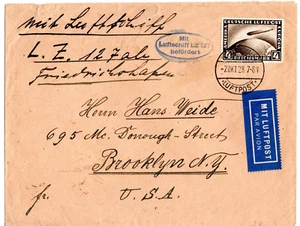 mit Luftschiff
L. Z. 127 ab
Friedrichshafen
Mit
Luftschiff LZ 127
befördert
DEUTSCHE LUFTPOST
FRIEDRICHSHAFEN
-7.OKT.28.7-8V
LUFTPOST
Herrn Hans Weide
695 Mc. Donough-Street
Brooklyn N.Y.
U.S.A.
fr.
MIT LUFTPOST
PAR AVION